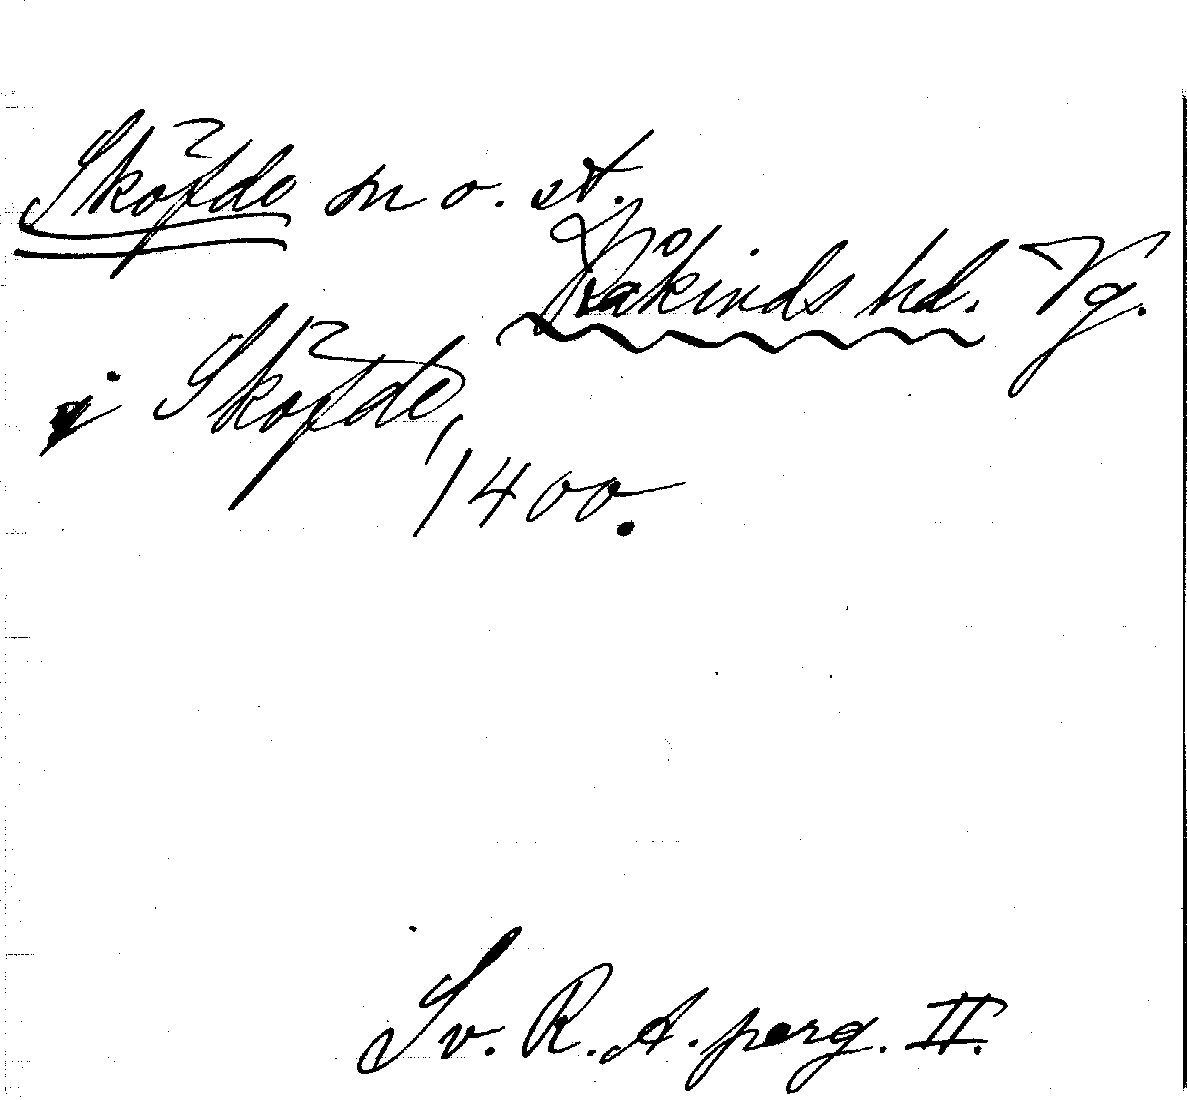 Sköfde sn o. st.
Kåkinds hd. Vg.
i Sköfde,
1400.
Sv. R. A. perg. II.